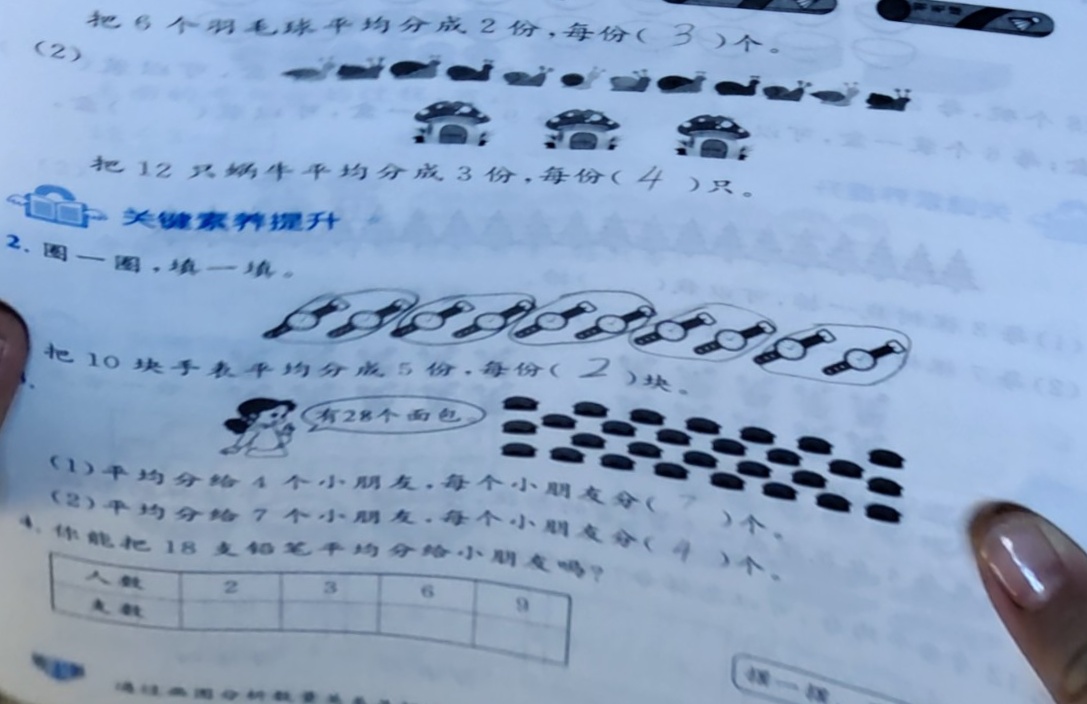 把6个羽毛球平均分成2份,每份(3)个。
(2)
把12只蜗牛平均分成3份,每份(4)只。
关键素养提升
2.圈一圈,填一填。
把10块手表平均分成5份,每份(2)块。
有28个面包。
(1)平均分给4个小朋友,每个小朋友分(7)个。
(2)平均分给7个小朋友,每个小朋友分(4)个。
4.你能把18支铅笔平均分给小朋友吗?
人数 2 3 6 9
支数
通过画图分析数量关系